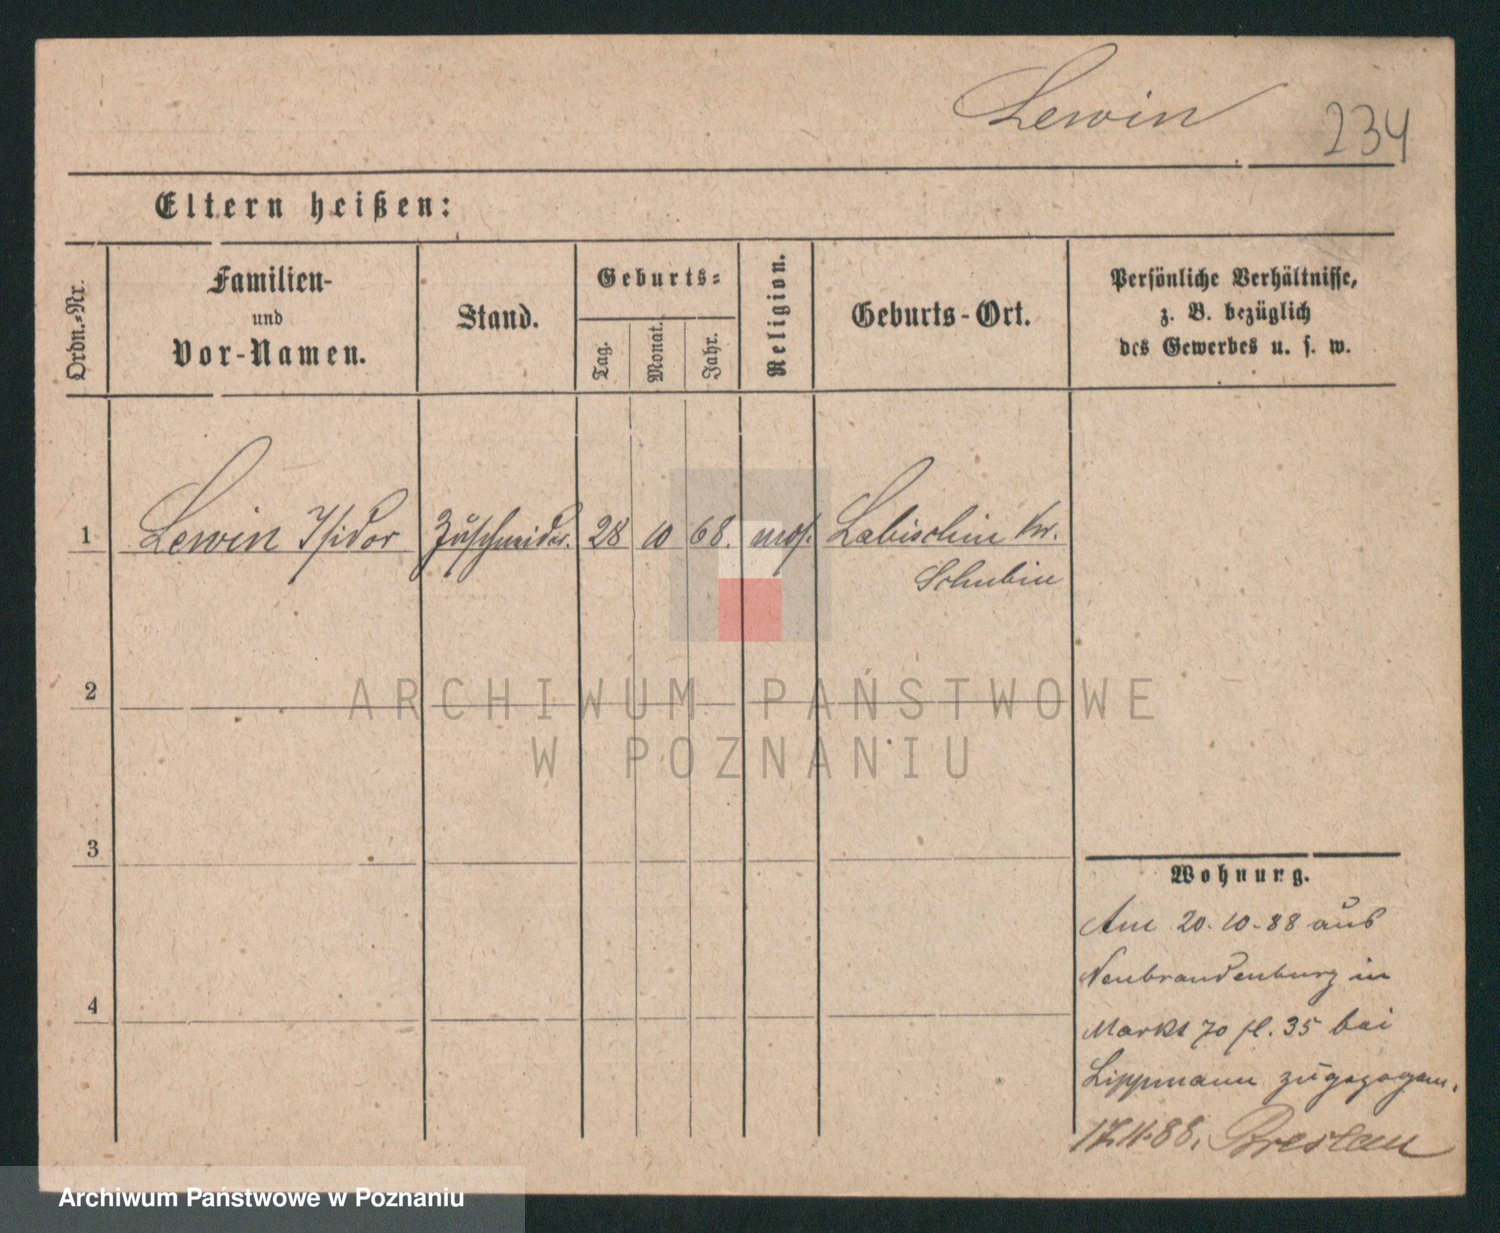 Lewin 234
Eltern heißen:
Ordn.-Nr.
Familien-
und
Vor-Namen.
Stand.
Geburts-
Tag.
Monat.
Jahr.
Religion.
Geburts-Ort.
Persönliche Verhältnisse,
z. B. bezüglich
des Gewerbes u. s. w.
1 Lewin Isidor Zuschneider. 28 10 68. mos. Labischin Kr.
Schubin
2
3
4
ARCHIWUM PAŃSTWOWE
W POZNANIU
Wohnung.
Am 20.10.88 aus
Neubrandenburg in
Markt 70 fl. 35 bei
Lippmann zugezogen.
17.11.88. Breslau
Archiwum Państwowe w Poznaniu